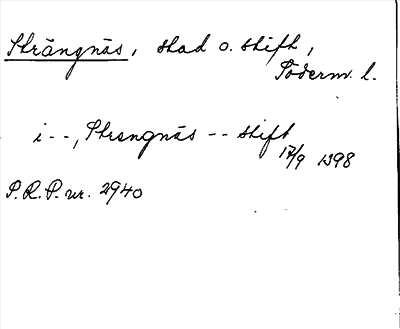 Strängnäs, stad o. stift,
Söderm. l.
i --, Strengnäs -- stift
17/9 1398
P.R.P. nr. 2940